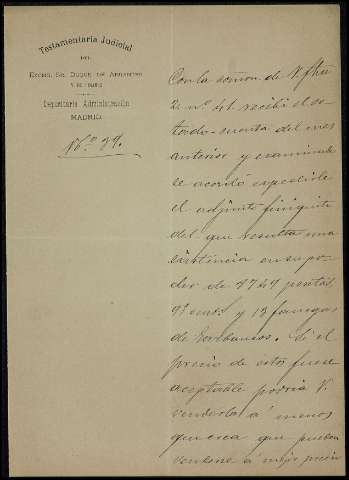 Testamentaria Judicial
DEL
Excmo. Sr. Duque de
Y DE
Depositaria Administración
MADRID
Nº 39.
Con la comon. de V. fha
2 nº 41 recibí el es-
tado-cuenta del mes
anterior y examinado
se acordó expedirle
el adjunto finiquito
del que resulta una
existencia en su po-
der de 9749 pesetas
9 y 13 fanegas
de Garbanzos. Si el
precio de estos fuese
aceptable podria V.
venderlos á menos
que crea que puedan
venderse á mejor precio